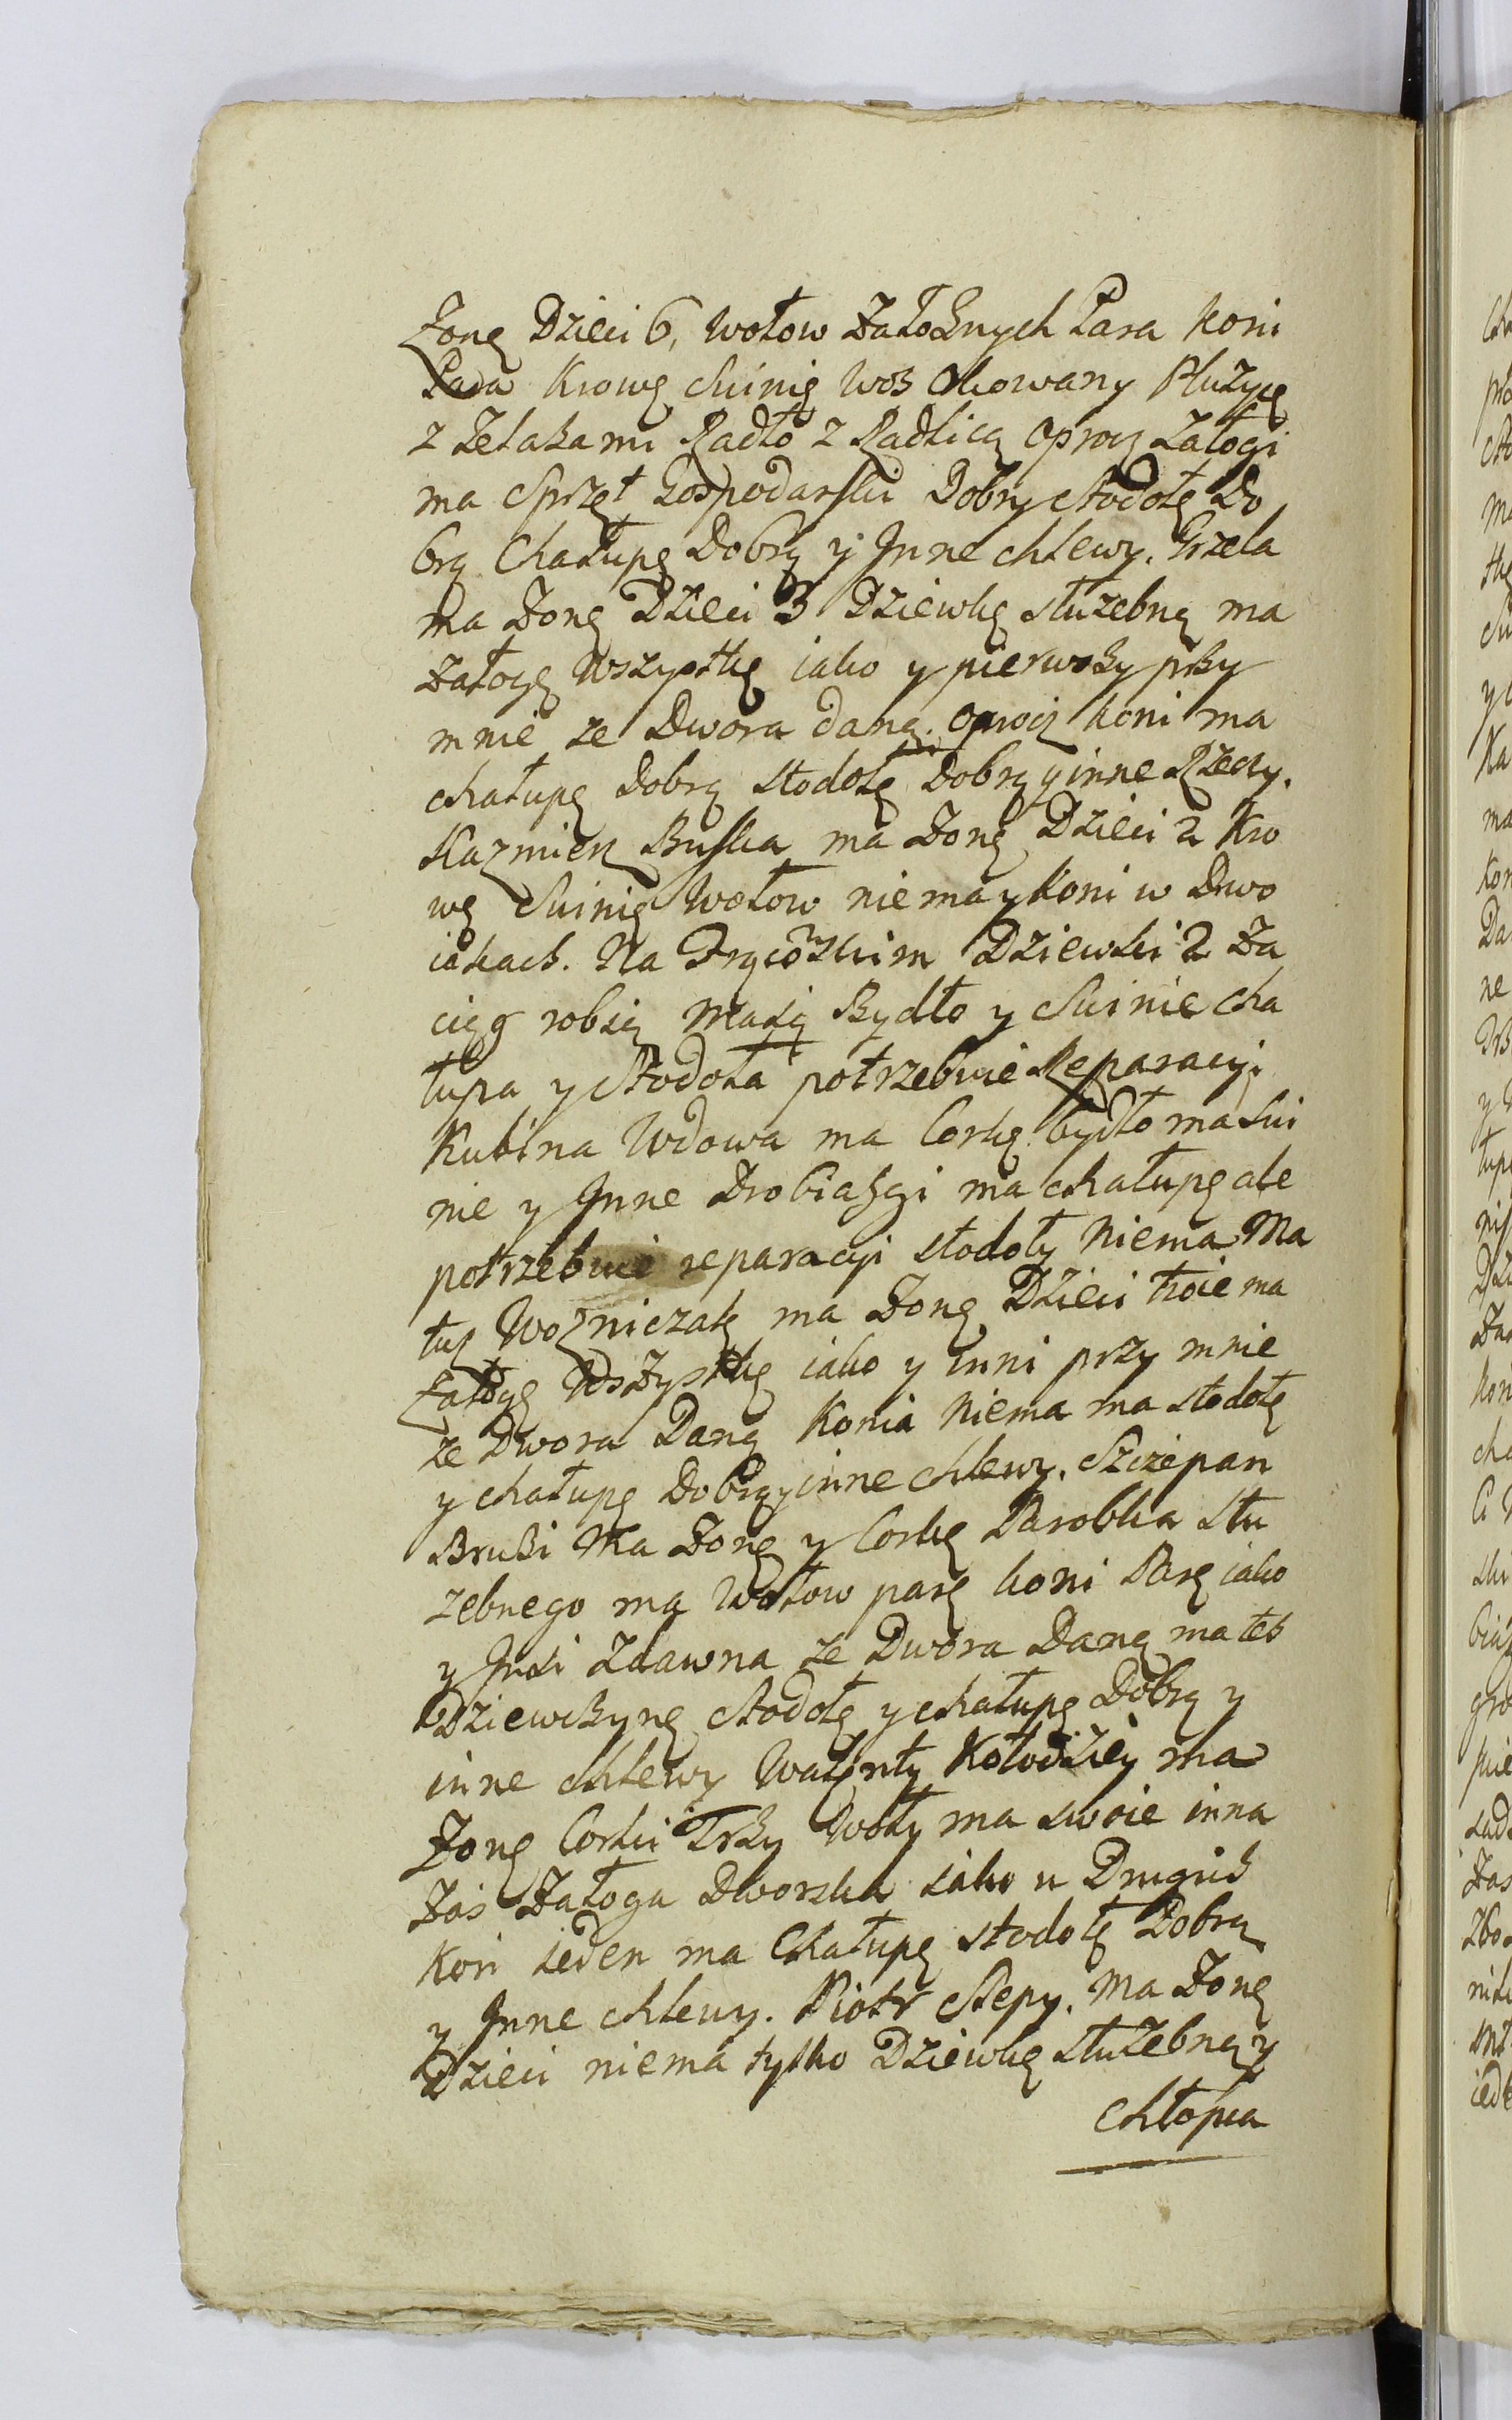 Zonę Dzieci 6, wołow Załoznych Para koni
Para Krowę Swinię Woz Okowany Płuzycę
z Zelazami Radło z Radlicą oprocz Załogi
ma Sprzęt Gospodarski Dobry Stodołę Do
brą Chałupę Dobrą y Jnne chlewy. Grzela
ma Zonę Dzieci 3 Dziewkę słuzebną ma
Załogę wszystkę iako y pierwszy przy
mnie ze Dwora daną. oprocz koni ma
chałupę dobrą stodołę Dobrą y inne Rzeczy.
Kazmierz Buska ma Zonę Dzieci 2 Kro
wę Swinię Wołow niema y koni w Dwo
iakach. Na Dziewki 2 Za
ciąg robią maią Bydło y Swinie cha
łupa y Stodoła potrzebuie Reparacyi
Kubina Wdowa ma Corkę bydło ma Swi
nie y Jnne Drobiazgi ma chałupę ale
potrzebuie reparacyi stodoły niema Ma
tus Wozniczak ma Zonę Dzieci troie ma
Załogę Wszystkę iako y inni przy mnie
ze Dwora Daną Konia niema ma stodołę
y chałupę Dobrą y inne chlewy. Szczepan
Bruzi Ma Zonę y Corkę Parobka słu
zebnego ma Wołow parę koni Parę iako
y Jnsi Zdawna ze Dwora Daną ma tez
Dziewczynę Stodołę y chałupę Dobrą y
inne chlewy Walęnty Kołodziey ma
Zonę Corki Trzy Woły ma swoie inna
Zas Załoga Dworska iako u Drugich
Koń ieden ma Chałupę stodołę Dobrą
y Jnne chlewy. Piotr Slepy. Ma Zonę
Dzieci niema tylko Dziewkę słuzebną y
chłopca